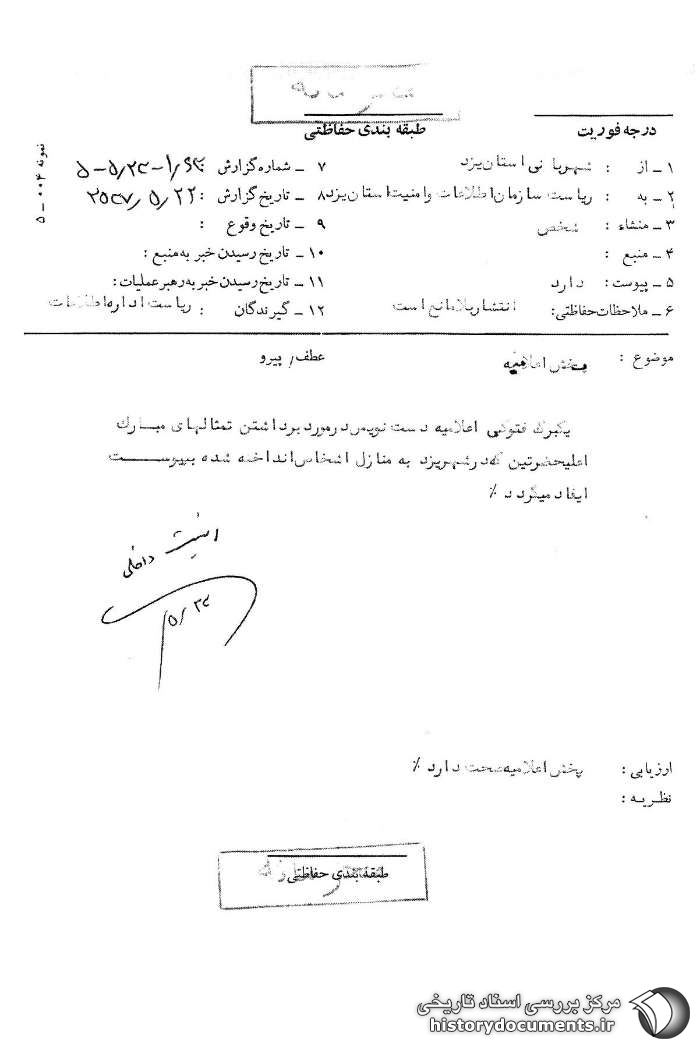 درجه فوریت
طبقه بندی حفاظتی
نمونه ۰۰۴ - ۵
۱ - از : شهربانی استان یزد
۲ - به : ریاست سازمان اطلاعات و امنیت استان یزد
۳ - منشاء : شخص
۴ - منبع :
۵ - پیوست : دارد
۶ - ملاحظات حفاظتی : انتشار بلامانع است
۷ - شماره گزارش
۸ - تاریخ گزارش : ۲۵۳۷/۵/۲۲
۹ - تاریخ وقوع :
۱۰ - تاریخ رسیدن خبر به منبع :
۱۱ - تاریخ رسیدن خبر به رهبر عملیات :
۱۲ - گیرندگان : ریاست اداره اطلاعات
موضوع : پخش اعلامیه
عطف/پیرو
یکبرگ فتوکپی اعلامیه دست نویس در مورد برداشتن تمثالهای مبارک
اعلیحضرتین که در شهر یزد به منازل اشخاص انداخته شده بپیوست
ایفاد میگردد ٪
امنیت داخلی
ارزیابی : پخش اعلامیه صحت دارد ٪
نظریه :
طبقه بندی حفاظتی
مرکز بررسی اسناد تاریخی
historydocuments.ir